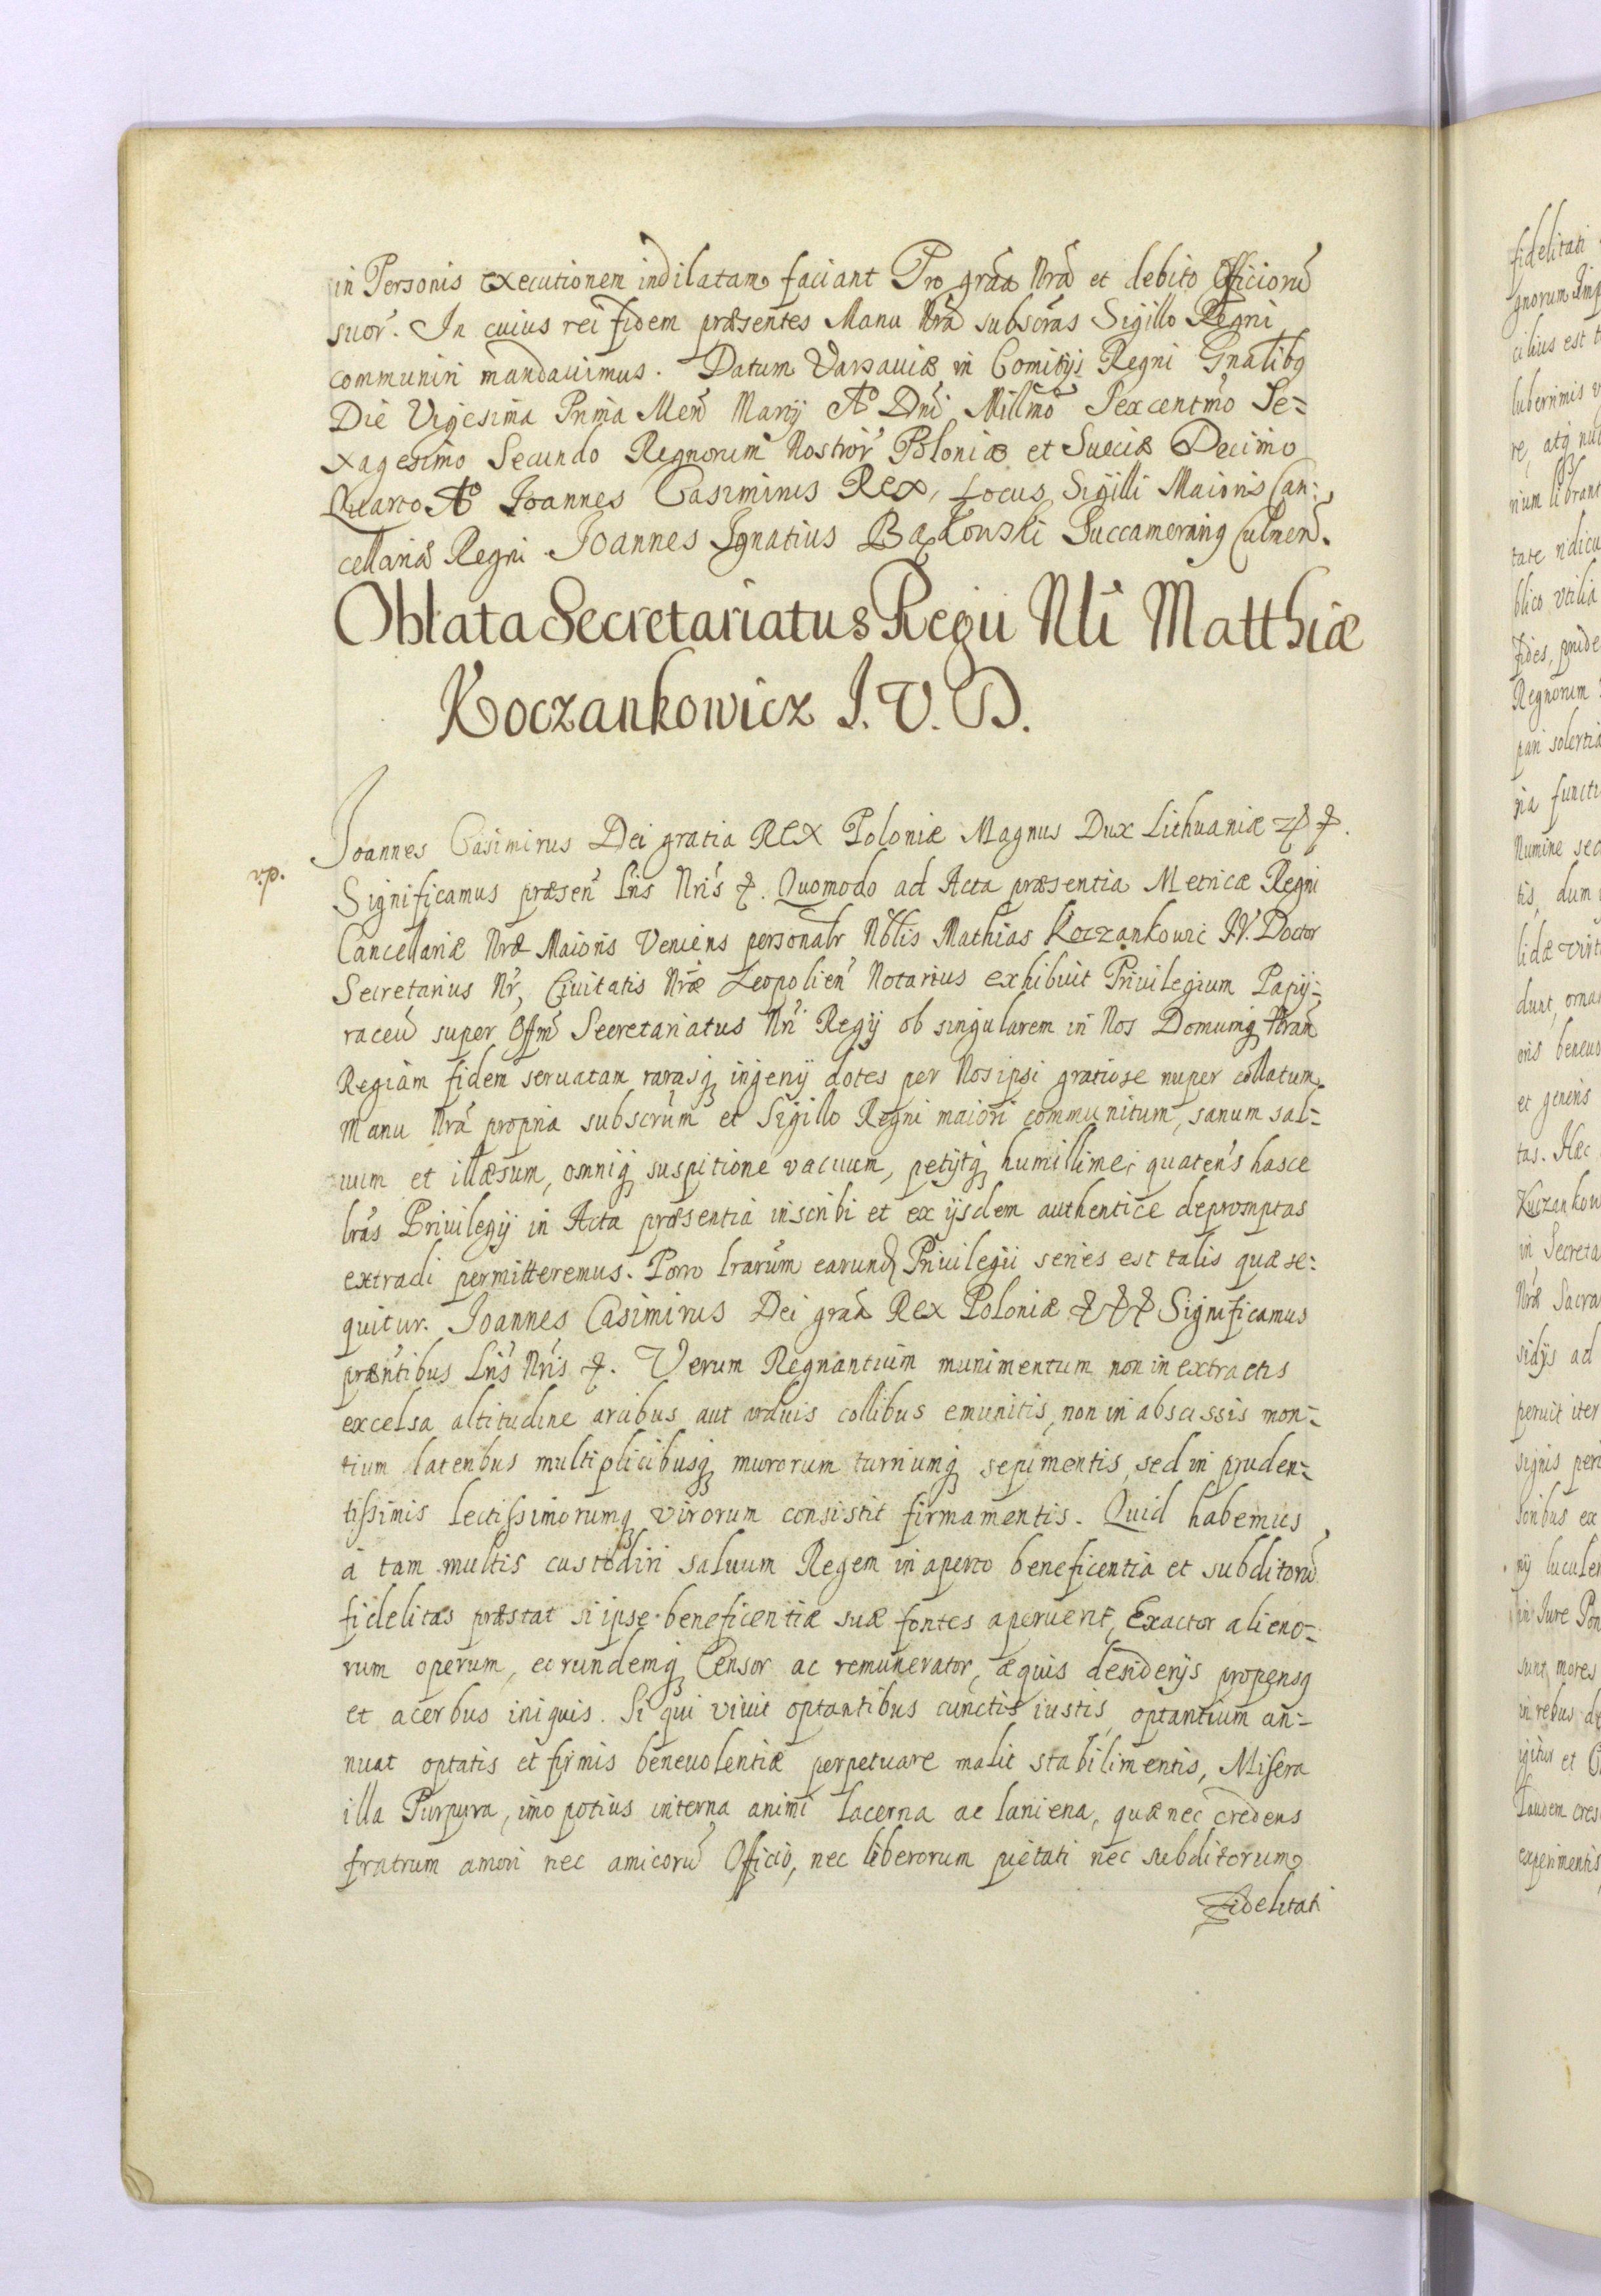 in Personis executionem indilatam faciant Pro grãa Nrã et debito Officiorũ
suor̃. In cuius rei fidem præsentes Manu Nrã subscrãs Sigillo Regni
communiri mandauimus. Datum Varsauiæ in Comitijs Regni Gnalibq
Die Vigesima Prima Men̄ Martij Aº Dnĩ Millmõ Sexcentmõ Se=
xagesimo Secundo Regnorum Nostror̃ Poloniæ et Sueciæ Decimo
Quarto Aº Joannes Casimirus Rex, Locus Sigilli Maioris Can=
cellariæ Regni Joannes Ignatius Bąkowski Succamerariq Culmen̄.
Oblata Secretariatus Regii Nli Matthiæ
Koczankowicz J. V. D.
Joannes Casimirus Dei gratia REX Poloniæ Magnus Dux Lithuaniæ
v.p.
Significamus præsen̄ Lris Nris. Quomodo ad Acta præsentia Metricæ Regni
Cancellariæ Nræ Maioris Veniens personalr Nblis Mathias Koczankowic J.V. Doctor
Secretarius Nr, Ciuitatis Nræ Leopolien̄ Notarius exhibuit Priuilegium Papij=
raceũ super Offm̃ Secretariatus Nri Regij ob singularem in Nos Domumq Nram
Regiam fidem seruatam rarasq ingenij dotes per Nos ipsi gratiose nuper collatum
Manu Nrã propria subscrũm et Sigillo Regni maiori communitum, sanum sal=
uum et illæsum, omniq suspitione vacuum, petijtq humillime, quaten̄s hasce
lrãs Priuilegij in Acta præsentia inscribi et ex ijsdem authentice depromptas
extradi permitteremus. Porro lrarũm earund Priuilegii series est talis quæ se=
quitur. Joannes Casimirus Dei grãa Rex Poloniæ Significamus
præntibus Lris Nris. Verum Regnantium munimentum non in extractis
excelsa altitudine arcibus aut arduis collibus emunitis, non in abscissis mon=
tium lateribus multiplicibusq murorum turriumq sepimentis, sed in pruden=
tissimis lectissimorumq virorum consistit firmamentis. Quid habemus,
à tam multis custodiri saluum Regem in aperto beneficentia et subditorũ
fidelitas præstat si ipse beneficentiæ suæ fontes aperuerit, Exactor alieno=
rum operum, eorundemq Censor ac remunerator, æquis desiderijs propensq
et acerbus iniquis. Si qui viuit optantibus cunctis iustis, optantium an=
nuat optatis et firmis beneuolentiæ perpetuare malit stabilimentis, Misera
illa Purpura, imo potius interna animi lacerna ac laniena, quæ nec credens
fratrum amori nec amicorũ Officio, nec liberorum pietati nec subditorum
Fidelitati